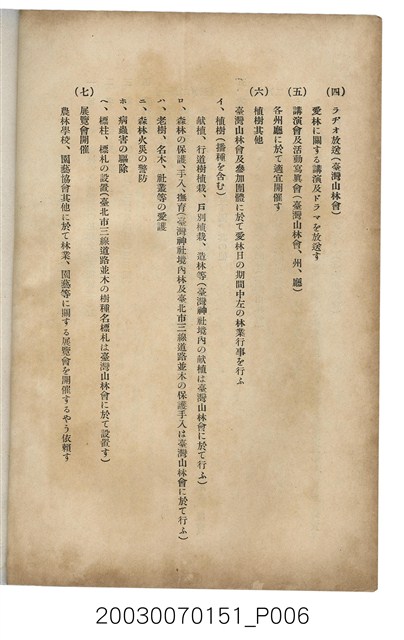 (四) ラヂオ放送(臺灣山林會)
愛林に關する講演及ドラマを放送す
(五) 講演會及活動寫眞會(臺灣山林會、州、廳)
各州廳に於て適宜開催す
(六) 植樹其他
臺灣山林會及參加團體に於て愛林日の期間中左の林業行事を行ふ
イ、植樹(播種を含む)
献植、行道樹植栽、戸別植栽、造林等(臺灣神社境內の献植は臺灣山林會に於て行ふ)
ロ、森林の保護、手入、撫育(臺灣神社境內林及臺北市三線道路並木の保護手入は臺灣山林會に於て行ふ)
ハ、老樹、名木、社叢等の愛護
ニ、森林火災の警防
ホ、病蟲害の驅除
ヘ、標柱、標札の設置(臺北市三線道路並木の樹種名標札は臺灣山林會に於て設置す)
(七) 展覽會開催
農林學校、園藝協會其他に於て林業、園藝等に關する展覽會を開催するやう依賴す
20030070151_P006